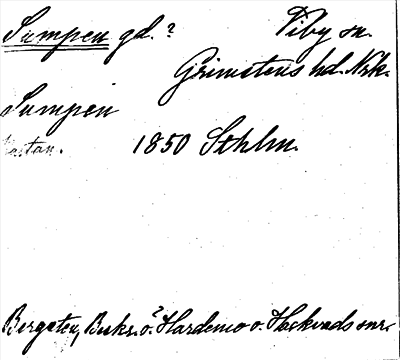 Sumpen gd. ? Viby sn.
Grimstens hd. Nrk.
Sumpen
1850 Sthlm.
Bergsten, Beskr. ö. Hardemo o. Hackvads snr.